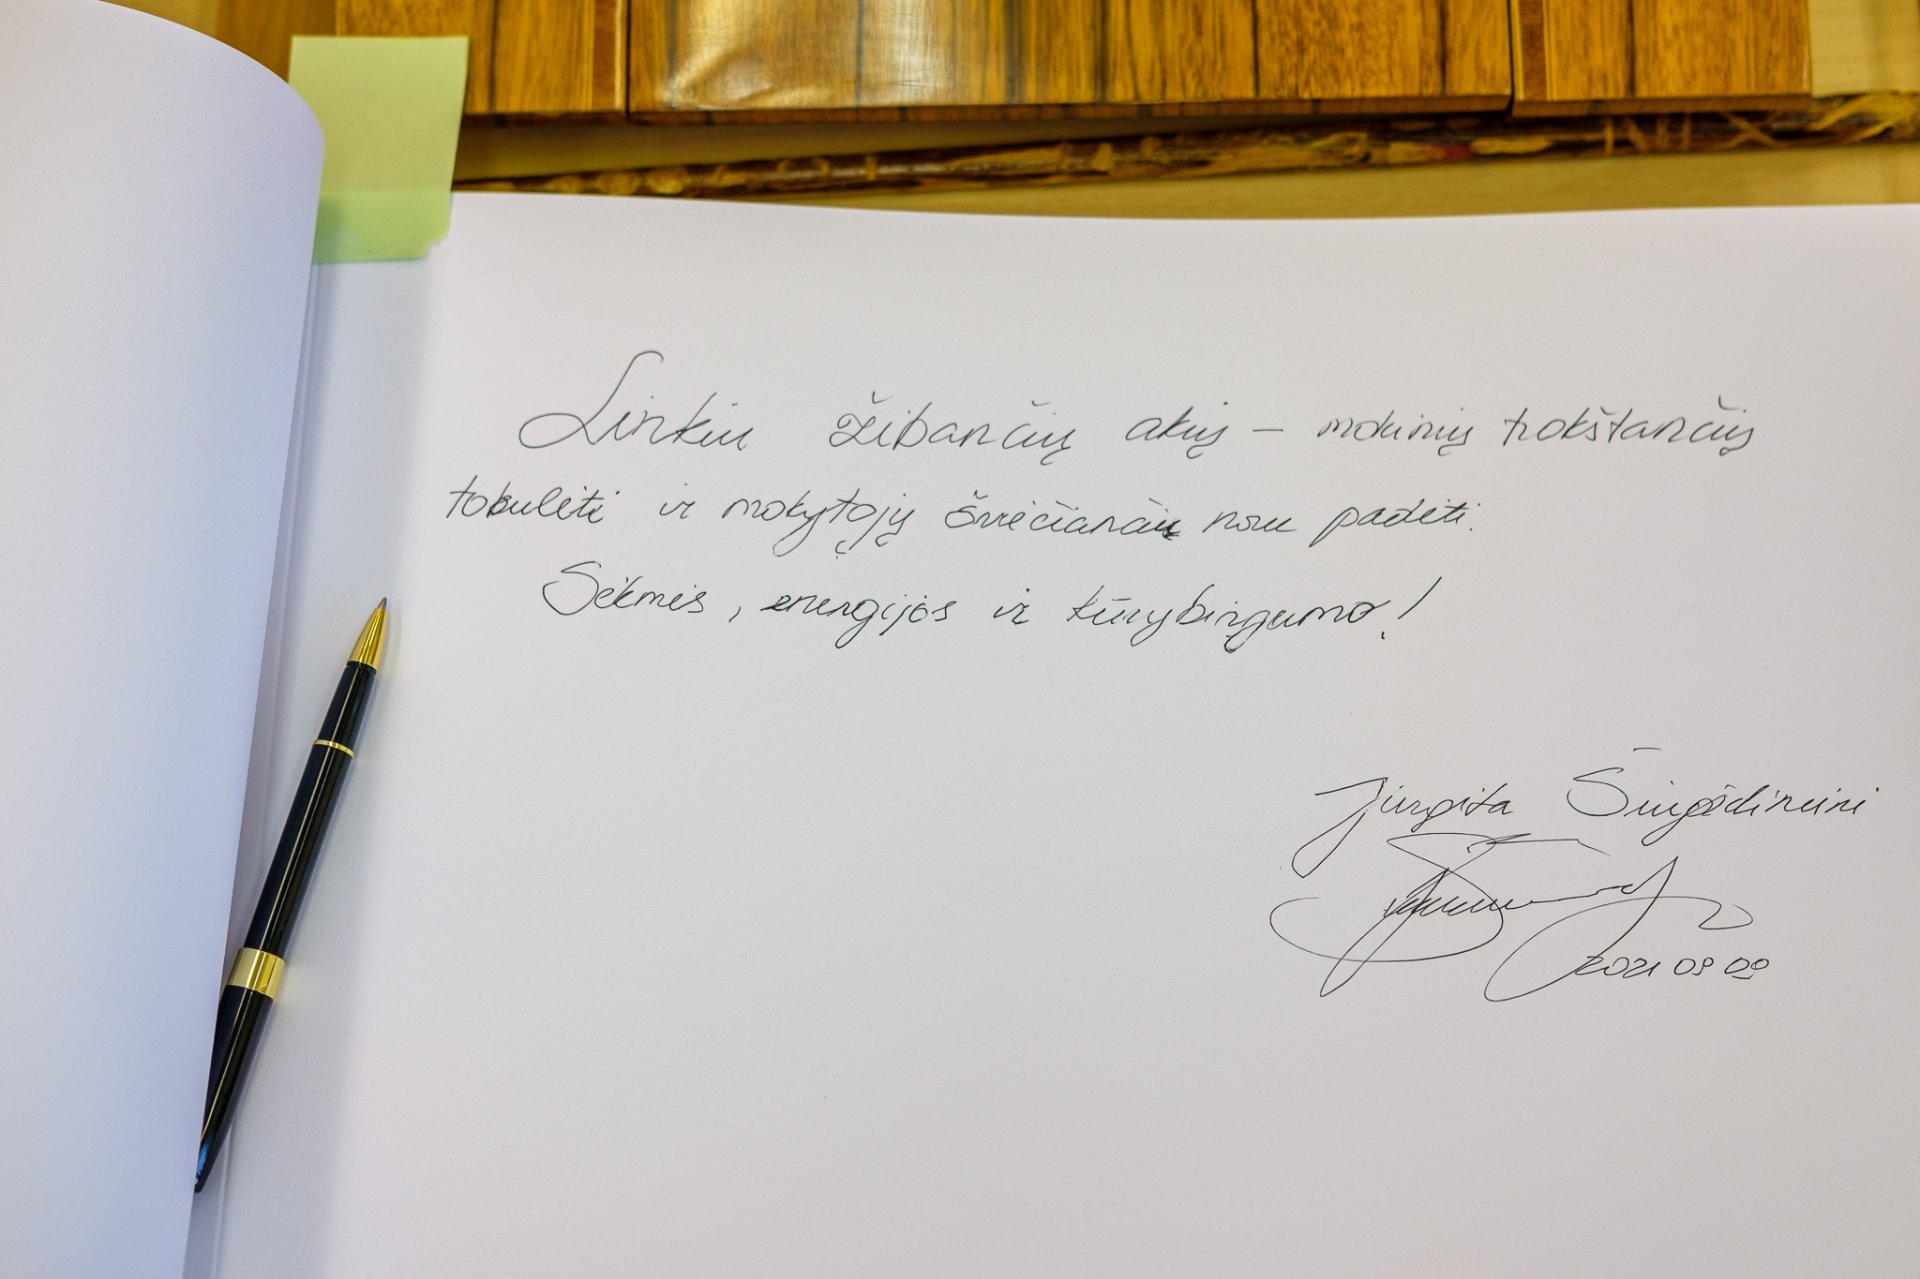 Linkiu žibančių akių – mokinių trokštančių
tobulėti ir mokytojų šviečiančių noru padėti.
Sėkmės, energijos ir kūrybingumo!
Jurgita Šiugždinienė
2021 09 09